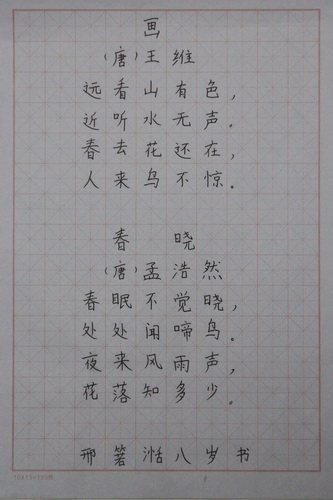 画
（唐）王维
远看山有色，
近听水无声。
春去花还在，
人来鸟不惊。
春晓
（唐）孟浩然
春眠不觉晓，
处处闻啼鸟。
夜来风雨声，
花落知多少。
邢箬湉八岁书